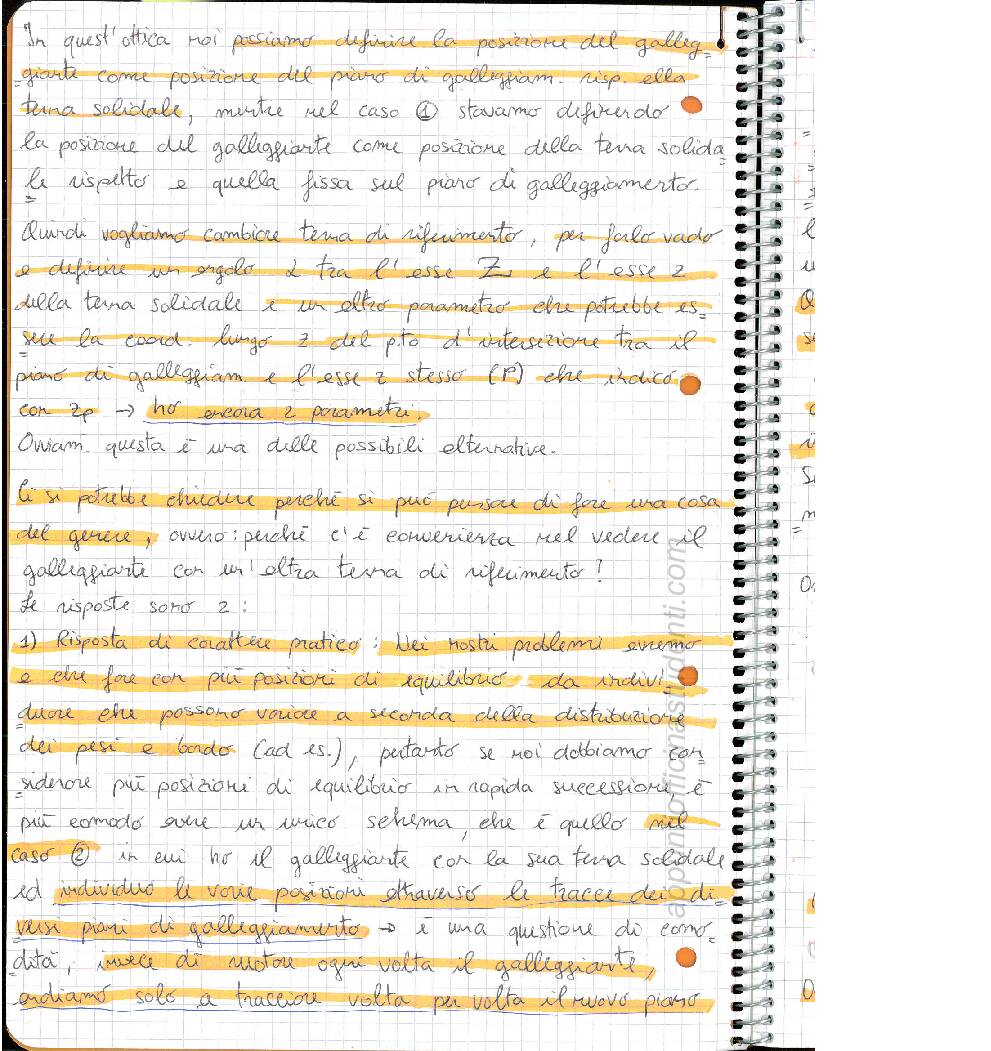 In quest'ottica noi possiamo definire la posizione del galleg=
giante come posizione del piano di galleggiam. risp. alla
terna solidale, mentre nel caso ① stavamo definendo
la posizione del galleggiante come posizione della terna solida
le rispetto a quella fissa sul piano di galleggiamento.
Quindi vogliamo cambiare terna di riferimento, per farlo vado
a definire un angolo α tra l'asse Z e l'asse z
della terna solidale e un altro parametro che potrebbe es=
sere la coord. lungo z del p.to d'intersezione tra il
piano di galleggiam. e l'asse z stesso (P) che indico
con zp → ho ancora 2 parametri.
Ovviam. questa è una delle possibili alternative.
Ci si potrebbe chiedere perché si può pensare di fare una cosa
del genere, ovvero: perché c'è convenienza nel vedere il
galleggiante con un'altra terna di riferimento?
Le risposte sono 2:
1) Risposta di carattere pratico: Nei nostri problemi avremo
a che fare con più posizioni di equilibrio da indivi=
duare che possono variare a seconda della distribuzione
dei pesi a bordo (ad es.), pertanto se noi dobbiamo con
siderare più posizioni di equilibrio in rapida successione è
più comodo avere un unico schema, che è quello nel
caso ② in cui ho il galleggiante con la sua terna solidale
ed individuo le varie posizioni attraverso le tracce dei di=
versi piani di galleggiamento → è una questione di como=
dità, invece di ruotare ogni volta il galleggiante,
andiamo solo a tracciare volta per volta il nuovo piano
appuntiofficinastudenti.com